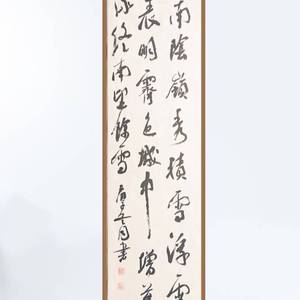 南陰嶺秀積雪浮雲
表明霽色城中增暮
終南望餘雪 庚子冬月書